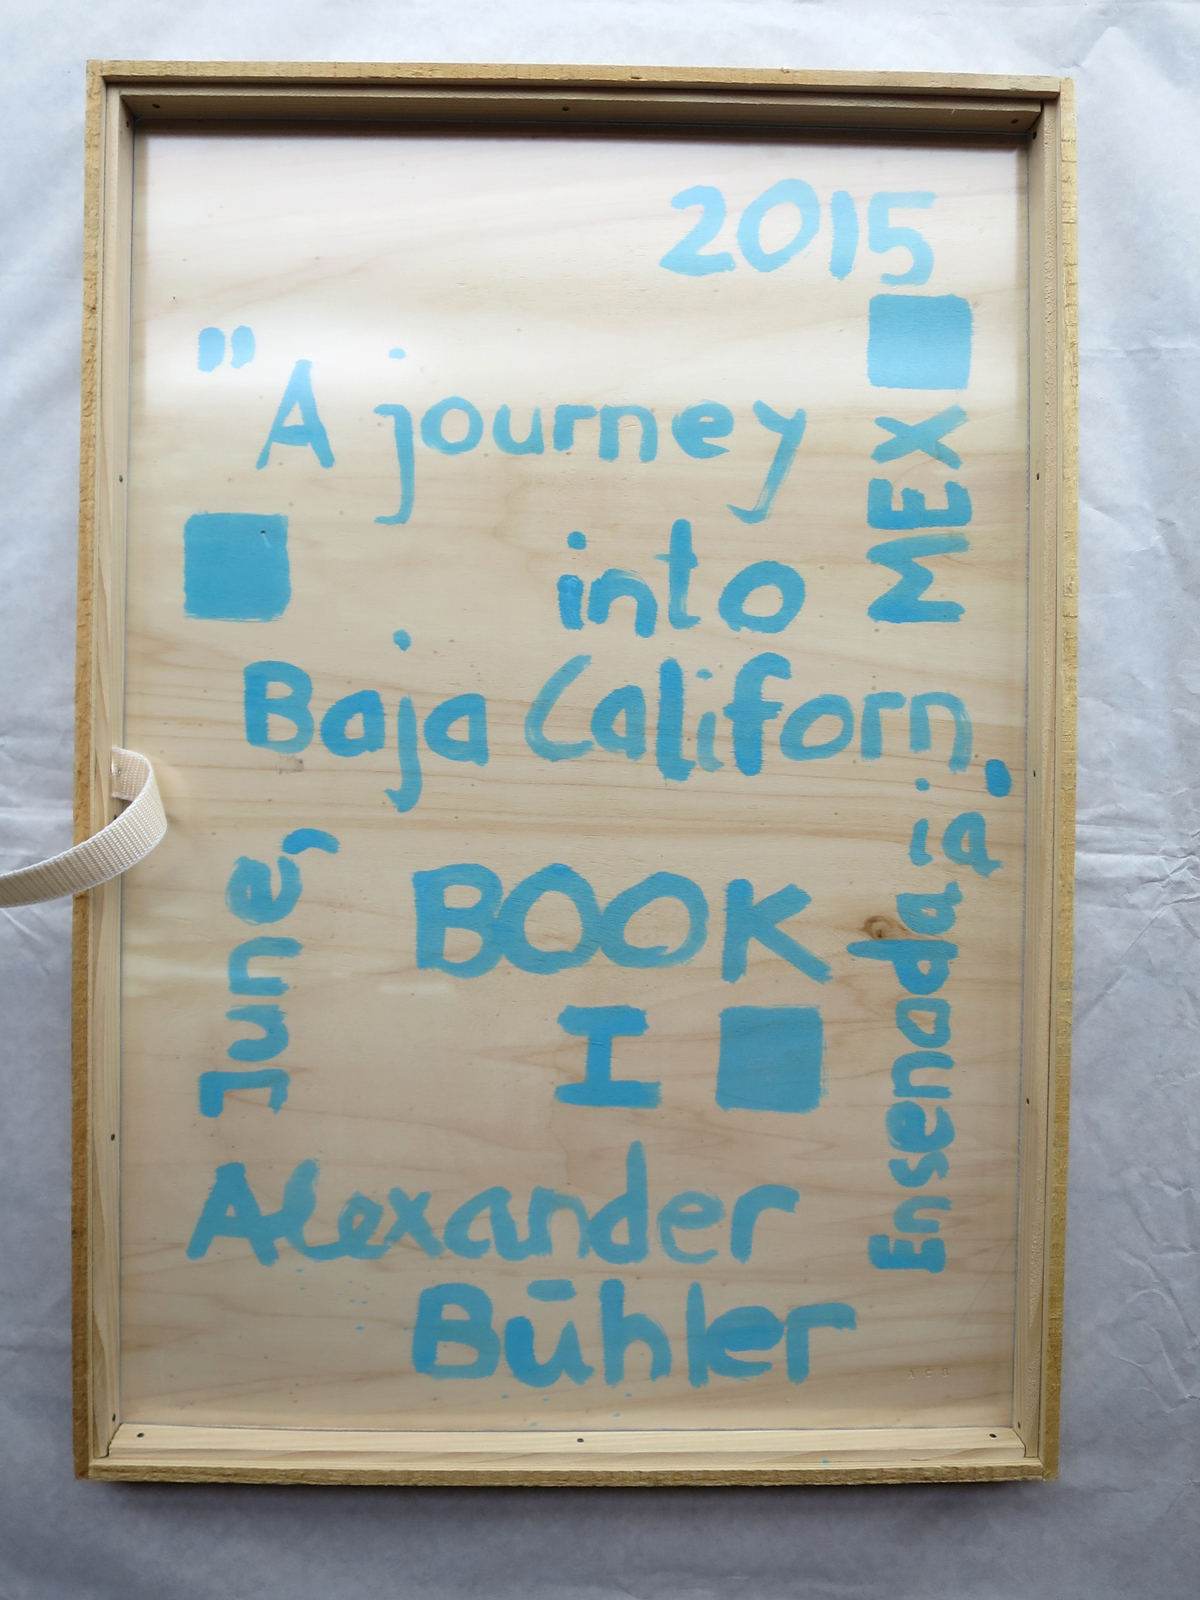 2015
MEX
"A journey
into
Baja Californ
ia."
June,
BOOK
I
Ensenada
Alexander
Bühler